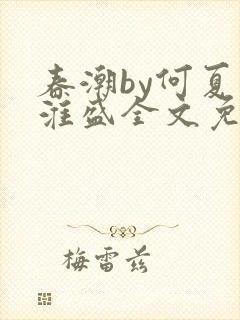 春潮by何夏
淮盛全文免
梅雷兹